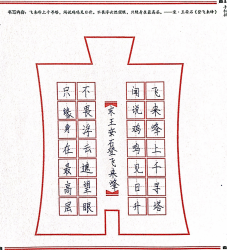 书写内容：飞来峰上千寻塔，闻说鸡鸣见日升。不畏浮云遮望眼，只缘身在最高层。——宋·王安石《登飞来峰》
飞来峰上千寻塔
闻说鸡鸣见日升
宋王安石登飞来峰
不畏浮云遮望眼
只缘身在最高层